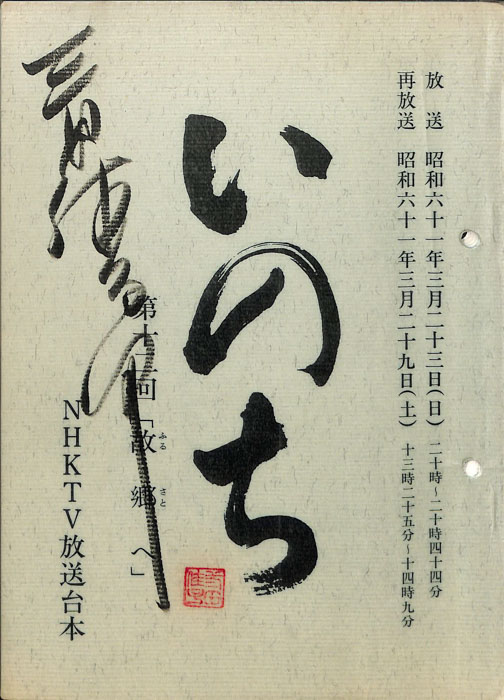 放送 昭和六十一年三月二十三日(日) 二十時~二十時四十四分
再放送 昭和六十一年三月二十九日(土) 十三時二十五分~十四時九分
いのち
第十二回「故郷へ」
ふるさと
NHKTV放送台本